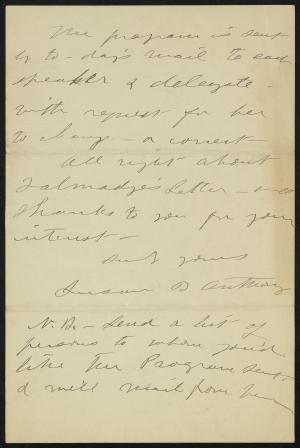 The program is sent
by to-day's mail to each
speaker & delegate -
with request for her
to change - or correct -
All right about
Talmadge's Letter - and
thanks to you for your
interest -
yours
Susan B Anthony
N.B. - Send a list of
persons to whom you'd
like the Program sent
& we'll mail from here